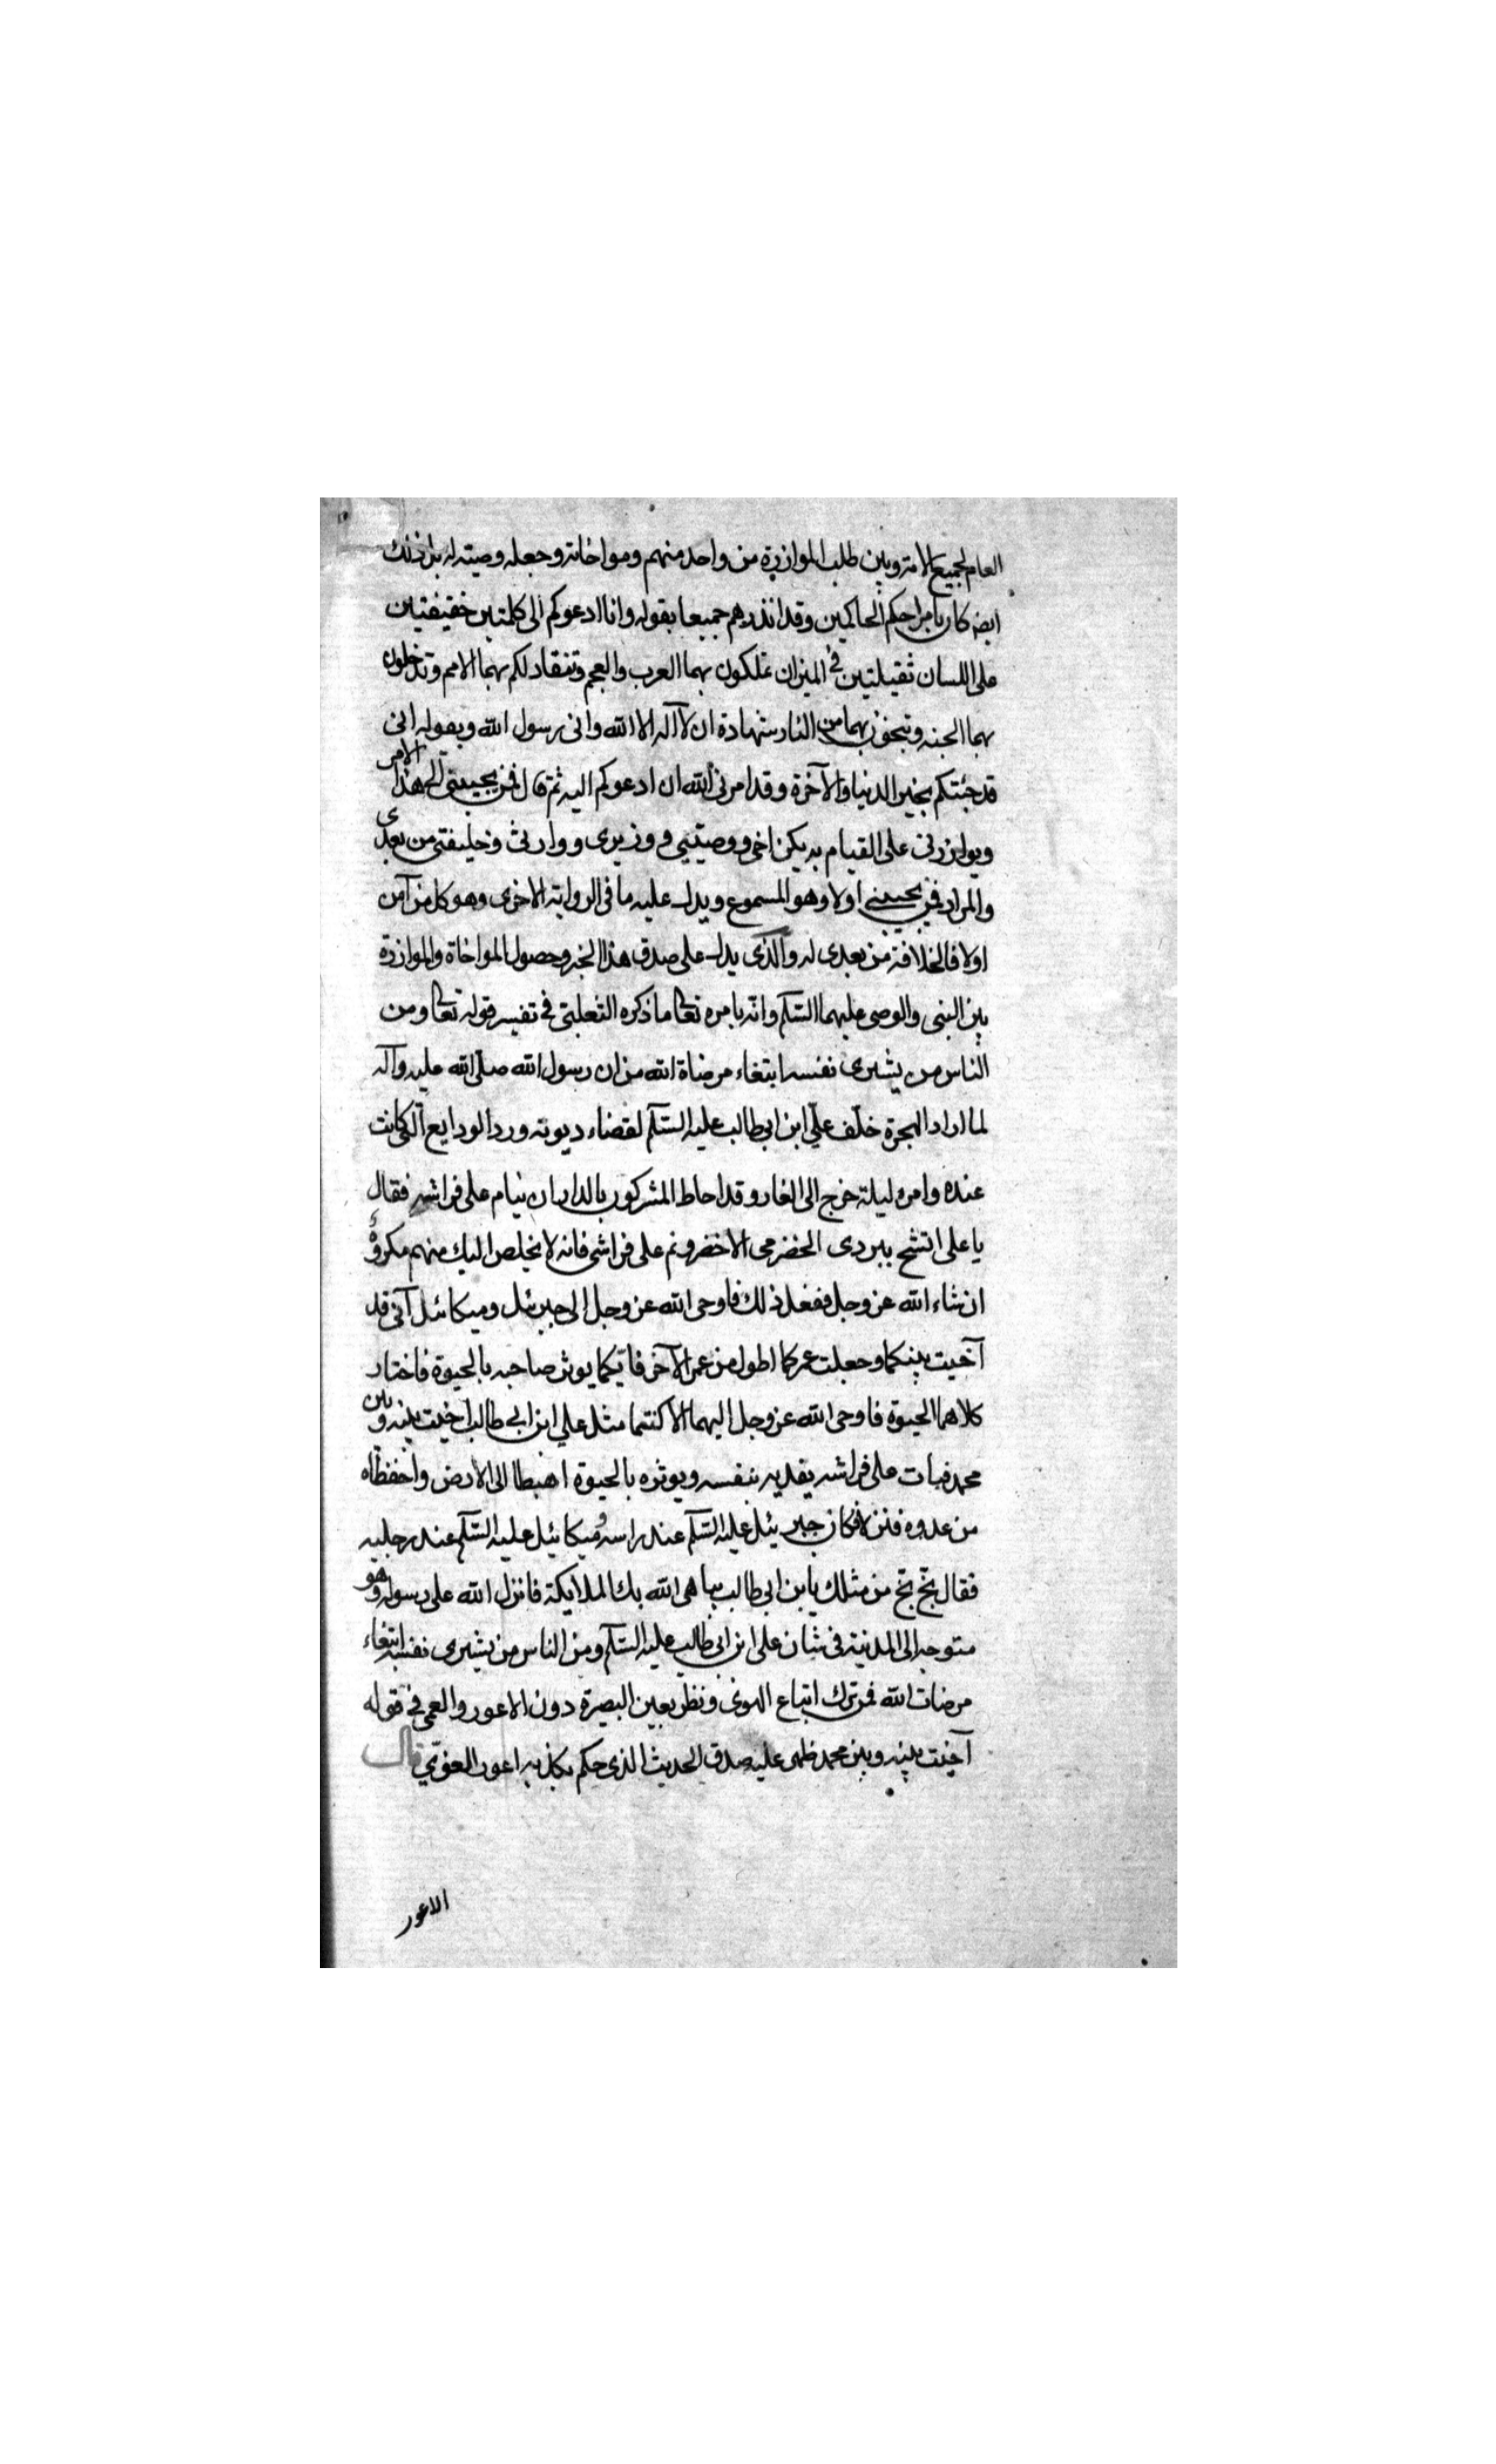 العام لجميع الامة وبين طلب الموازرة من واحد منهم ومواخاته وجعله وصيته له بل ذلك
ايضه كان بامر احكم الحاكمين وقد انذرهم جميعا بقوله وانا ادعوكم الى كلمتين خفيفتين
على اللسان ثقيلتين في الميزان تملكون بهما العرب والعجم وتنقاد لكم بهما الامم وتدخلون
بهما الجنه وتنجون بهما من النار شهادة ان لا آله الا الله واني رسول الله وبقوله انى
قد جئتكم بخير الدنيا والآخرة وقد امرني الله ان ادعوكم اليه ثم قال فمن يجيبنى الى هذا الامر
ويوازرنى على القيام به يكن اخى ووصيتيى ووزيرى ووارثى وخليفتى من بعدى
والمراد فمن يجيبنى اولا وهو المسموع ويدل عليه ما فى الرواية الاخرى وهو كل من آمن
اولا فالخلافة من بعدى له والذى يدل على صدق هذا الخبر وحصول المواخاة والموازرة
بين النبى والوصى عليهما السلم وانه بامره تعالى ما ذكره الثعلبى فى تفسير قوله تعالى ومن
الناس من يشرى نفسه ابتغاء مرضاة الله من ان رسول الله صلى الله عليه وآله
لما اراد الهجرة خلّف علىّ ابن ابى طالب عليه السلم لقضاء ديونه ورد الودايع التى كانت
عنده وامره ليلة خرج الى الغار وقد احاط المشركون بالدار ان ينام على فراشه فقال
يا على اتشح ببردى الحضرمى الاخضر ونم على فراشى فانه لا يخلص اليك منهم مكروه
ان شاء الله عز وجل ففعل ذلك فاوحى الله عز وجل الى جبرئيل وميكائيل آنى قد
آخيت بينكما وجعلت عمركما اطول من عمر الآخر فايكما يوثر صاحبه بالحيوة فاختار
كلاهما الحيوة فاوحى الله عز وجل اليهما الا كنتما مثل علي ابن ابي طالب اخيت بينه وبين
محمد فبات على فراشه يفديه بنفسه ويوثره بالحيوة اهبطا الى الارض واحفظاه
من عدوه فنزلا فكان جبريئل عليه السلم عند راسه وميكائيل عليه السلم عند رجليه
فقال بخ بخ من مثلك يا بن ابي طالب يباهى الله بك الملايكة فانزل الله على رسوله وهو
متوجه الى المدنية فى شان على ابن ابى طالب عليه السلم ومن الناس من يشرى نفسه ابتغاء
مرضات الله فمن ترك اتباع الهوى ونظر بعين البصيرة دون الاعور والعمى فى قوله
آخيت بينه وبين محمد ظهر عليه صدق الحديث الذى حكم بكذبه اعور الغوىّ قال
الاعور